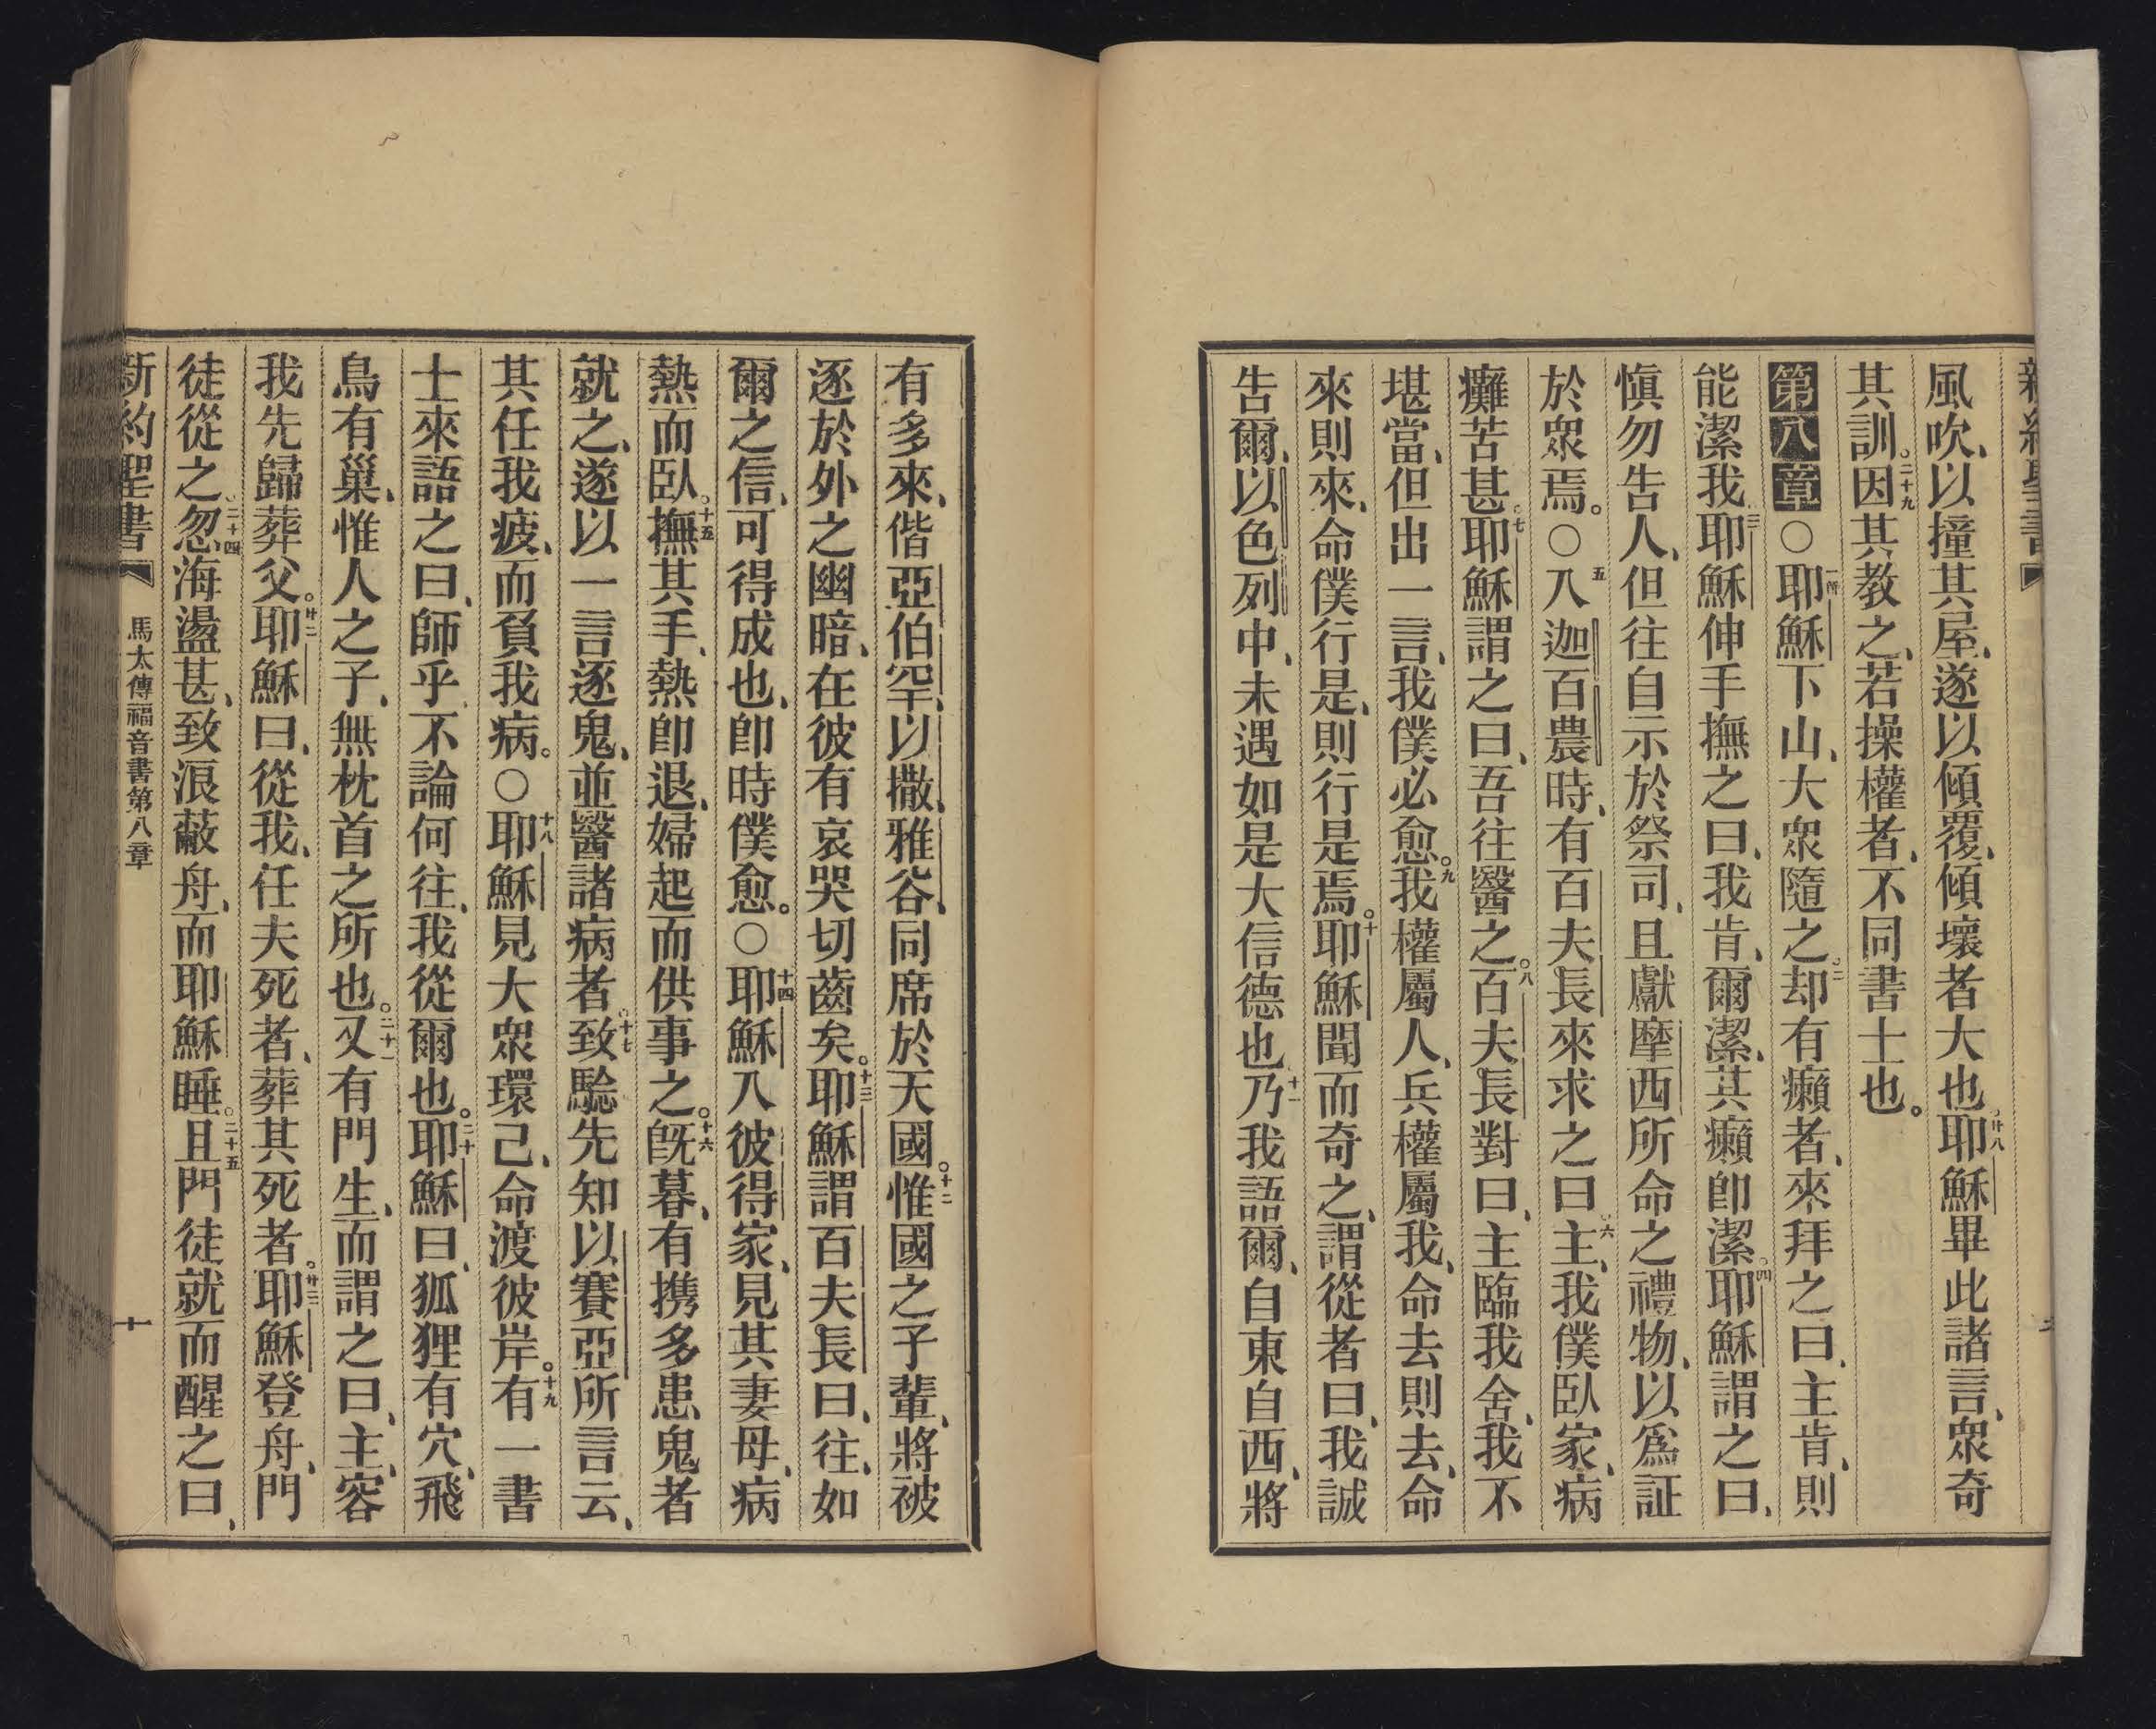 風吹、以撞其屋、遂以傾覆、傾壞者大也、卄八耶穌畢此諸言、衆奇
其訓。二十九因其教之、若操權者、不同書士也。
第八章○一節耶穌下山、大衆隨之。二却有癩者、來拜之曰、主肯、則
能潔我三耶穌伸手撫之曰、我肯、爾潔、其癩卽潔。四耶穌謂之曰、
愼勿告人、但往自示於祭司、且獻摩西所命之禮物、以爲証
於衆焉。○五入迦百農時、有百夫長來求之曰、六主、我僕臥家、病
癱苦甚。七耶穌謂之曰、吾往醫之。八百夫長對曰、主臨我舍、我不
堪當、但出一言、我僕必愈。九我權屬人、兵權屬我、命去則去、命
來則來、命僕行是、則行是焉。十耶穌聞而奇之、謂從者曰、我誠
告爾、以色列中、未遇如是大信德也、十一乃我語爾、自東自西、將
有多來、偕亞伯罕、以撒、雅谷、同席於天國。十二惟國之子輩、將被
逐於外之幽暗、在彼有哀哭切齒矣。十三耶穌謂百夫長曰、往、如
爾之信、可得成也、卽時僕愈。○十四耶穌入彼得家、見其妻母、病
熱而臥。十五撫其手、熱卽退、婦起而供事之。十六旣暮、有携多患鬼者
就之、遂以一言逐鬼、並醫諸病者。十七致騐先知以賽亞所言云、
其任我疲、而負我病。○十八耶穌見大衆環己、命渡彼岸。十九有一書
士來語之曰、師乎、不論何往、我從爾也。二十耶穌曰、狐狸有穴、飛
鳥有巢、惟人之子、無枕首之所也。二十一又有門生、而謂之曰、主、容
我先歸葬父。卄二耶穌曰、從我、任夫死者、葬其死者。卄三耶穌登舟、門
徒從之、二十四忽海盪甚、致浪蔽舟、而耶穌睡。二十五且門徒就而醒之曰、
新約聖書 馬太傳福音書第八章 十